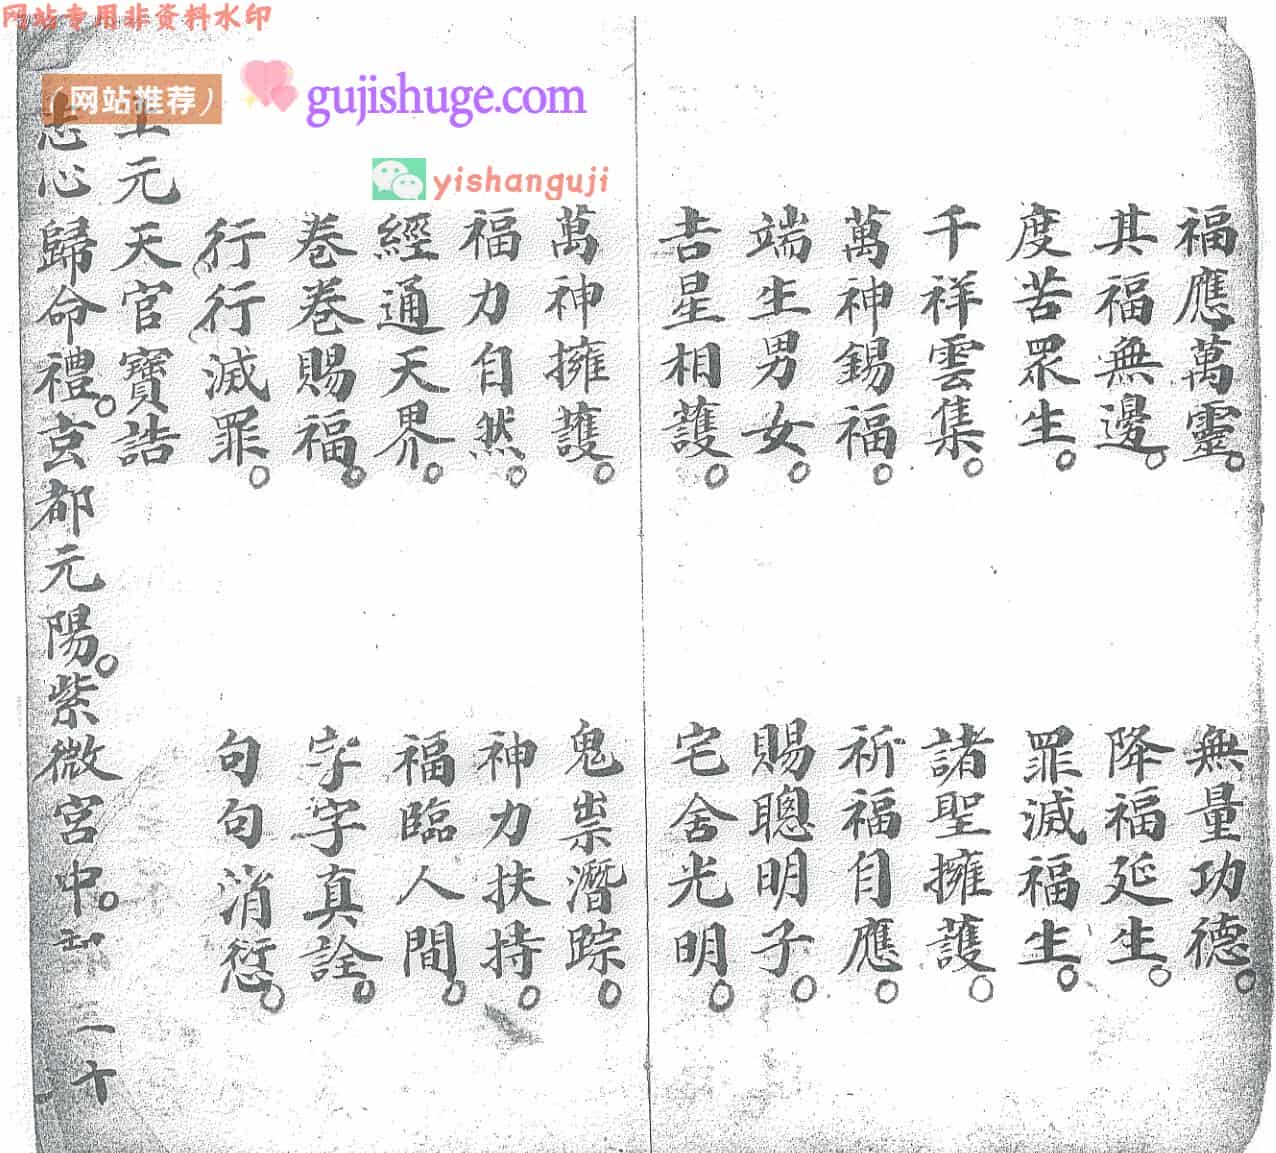 网站专用非资料水印
（网站推荐）
gujishuge.com
yishanguji
福應萬靈 無量功德
其福無邊 降福延生
度苦眾生 罪滅福生
千祥雲集 諸聖擁護
萬神錫福 祈福自應
端生男女 賜聰明子
吉星相護 宅舍光明
萬神擁護 鬼祟潛踪
福力自然 神力扶持
經通天界 福臨人間
卷卷賜福 字字真詮
行行滅罪 句句消愆
上元天官寶誥
志心歸命禮玄都元陽紫微宮中部三十